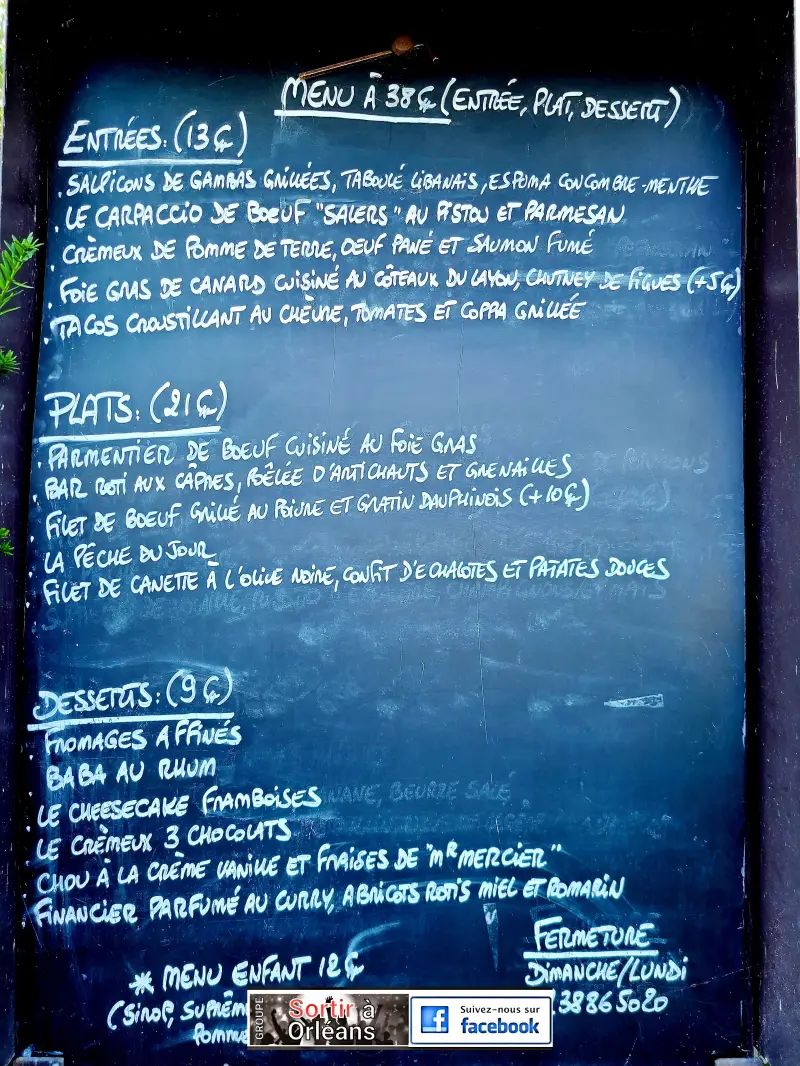 MENU À 38€ (ENTRÉE, PLAT, DESSERT)
ENTRÉES: (13€)
. SALPICONS DE GAMBAS GRILLÉES, TABOULÉ LIBANAIS, ESPUMA CONCOMBRE-MENTHE
. LE CARPACCIO DE BOEUF "SALERS" AU PISTOU ET PARMESAN
. CRÈMEUX DE POMME DE TERRE, OEUF PANÉ ET SAUMON FUMÉ
. FOIE GRAS DE CANARD CUISINÉ AU CÔTEAUX DU LAYON, CHUTNEY DE FIGUES (+5€)
. TACOS CROUSTILLANT AU CHÈVRE, TOMATES ET COPPA GRILLÉE
PLATS: (21€)
. PARMENTIER DE BOEUF CUISINÉ AU FOIE GRAS
. BAR ROTI AUX CÂPRES, POÊLÉE D'ARTICHAUTS ET GRENAILLES
. FILET DE BOEUF GRILLÉ AU POIVRE ET GRATIN DAUPHINOIS (+10€)
. LA PÊCHE DU JOUR
. FILET DE CANETTE À L'OLIVE NOIRE, CONFIT D'ECHALOTES ET PATATES DOUCES
DESSERTS: (9€)
. FROMAGES AFFINÉS
. BABA AU RHUM
. LE CHEESECAKE FRAMBOISES
. LE CRÈMEUX 3 CHOCOLATS
. CHOU À LA CRÈME VANILLE ET FRAISES DE "MR MERCIER"
. FINANCIER PARFUMÉ AU CURRY, ABRICOTS ROTIS MIEL ET ROMARIN
* MENU ENFANT 12€
(SIROP, SUPRÊM
POMME
FERMETURE
DIMANCHE/LUNDI
38865020
GROUPE
Sortir à
Orléans
Suivez-nous sur
facebook